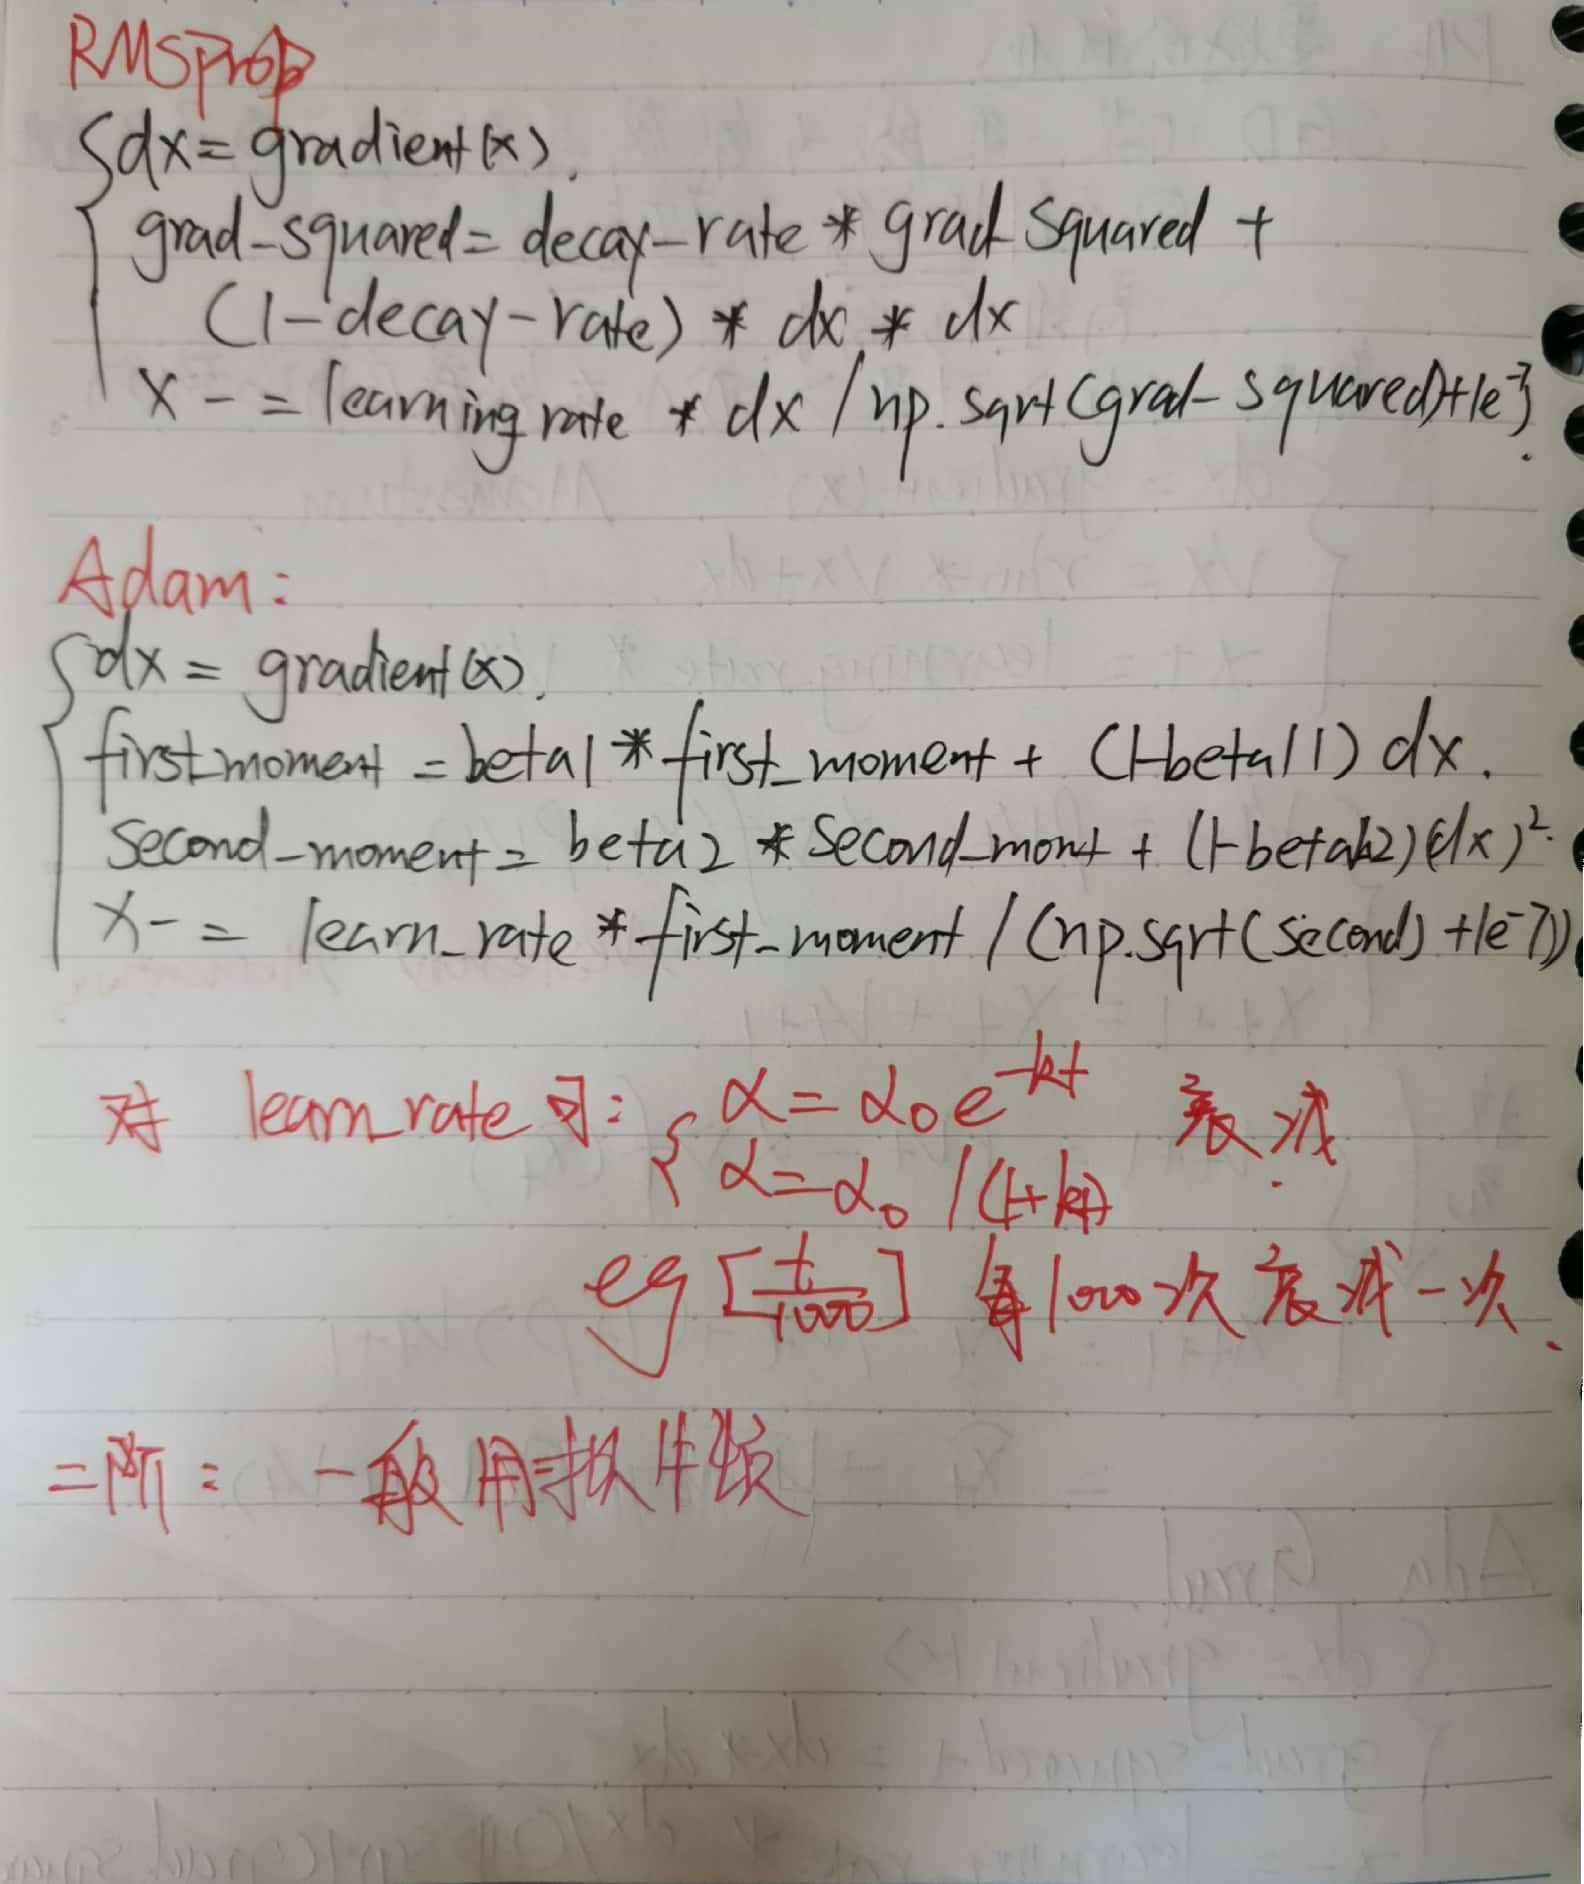 RMSprop
dx = gradient(x).
grad-squared = decay-rate * grad squared +
(1-decay-rate) * dx * dx
x -= learning rate * dx / np.sqrt(grad-squared)+1e-7
Adam:
dx = gradient(x).
first_moment = beta1 * first_moment + (1-beta11) dx.
Second_moment = beta2 * Second_momt + (1-beta2)(dx)².
x -= learn_rate * first_moment / (np.sqrt(second) + 1e-7))
对 learn_rate 可: α = α₀e^-kt 衰减.
α = α₀ / (1+kt)
eg [t/1000] 每1000次衰减一次.
二阶: 一般用拟牛顿